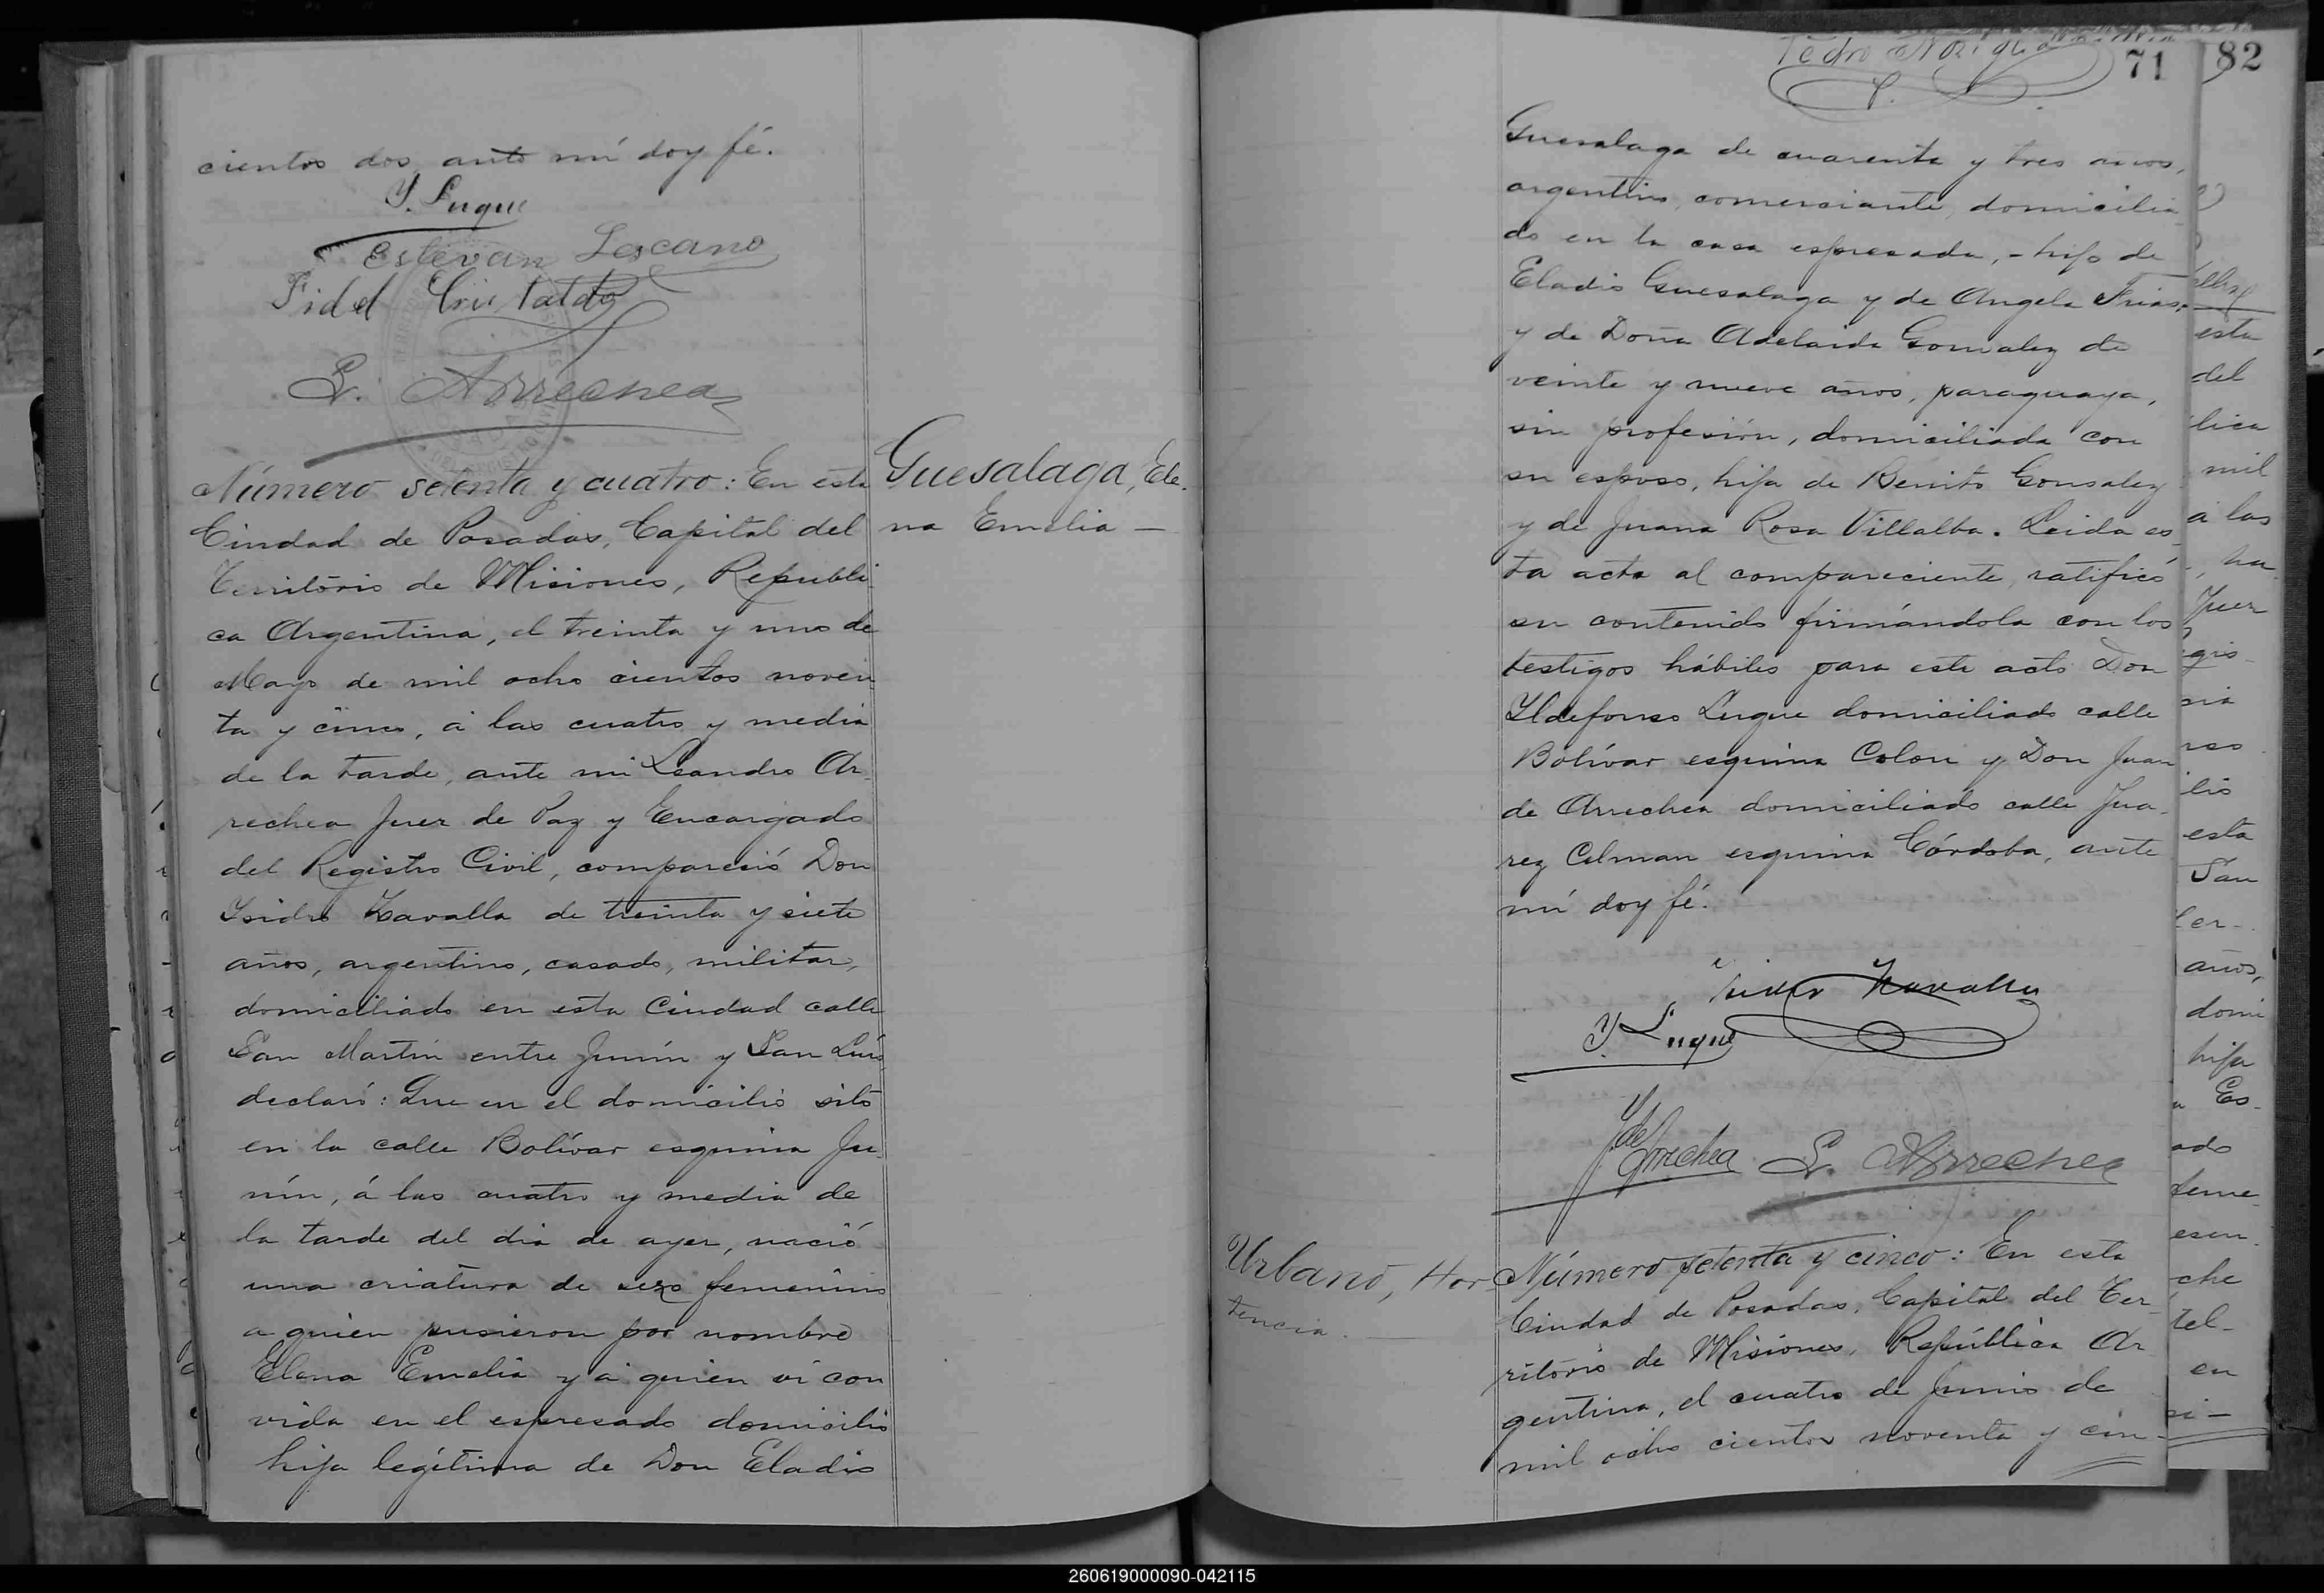 cientos dos, ante mí doy fé.
Y. Luque
Estevan Lescano
Fidel Cristaldo
L. Arrechea
Número setenta y cuatro: En esta
Ciudad de Posadas, Capital del
Territorio de Misiones, Republi
ca Argentina, el treinta y uno de
Mayo de mil ocho cientos noven
ta y cinco, á las cuatro y media
de la tarde, ante mi Leandro Ar
rechea Juez de Paz y Encargado
del Registro Civil, compareció Don
Isidro Zavalla de treinta y siete
años, argentino, casado, militar,
domiciliado en esta Ciudad calle
San Martin entre Junín y San Luis
declaró: Que en el domicilio sito
en la calle Bolívar esquina Ju
nín, á las cuatro y media de
la tarde del dia de ayer, nació
una criatura de sexo femenino
a quien pusieron por nombre
Elena Emelia y á quien ví con
vida en el espresado domicilio
hija legítima de Don Eladio
Guesalaga, Ele.
na Emelia —
Pedro Noriga
71
82
Guesalaga de cuarenta y tres años,
argentino, comerciante, domicilia
do en la casa espresada, - hijo de
Eladio Guesalaga y de Angela Frias.
y de Doña Adelaida Gonzalez de
veinte y nueve años, paraguaya,
sin profesión, domiciliada con
su esposo, hija de Benito Gonsalez
y de Juana Rosa Villalba. Leida es
ta acta al compareciente, ratificó
su contenido firmándola con los
testigos hábiles para este acto Don
Yldefonso Luque domiciliado calle
Bolívar esquina Colon y Don Juan
de Arrechea domiciliado calle Jua
rez Celman esquina Córdoba, ante
mí doy fé.
Isidro Zavalla
Y Luque
J. de Arrechea L. Arrechea
Urbano, Hor
tencia. —
Número setenta y cinco: En esta
Ciudad de Posadas, Capital del Ter
ritorio de Misiones, República Ar
gentina, el cuatro de Junio de
mil ocho cientos noventa y cin-
esta
del
lica
mil
á las
Juez
gis
nia
lio
esta
San
Ter-
años,
domi
hija
Es
ado
feme
che
tel-
en
260619000090-042115